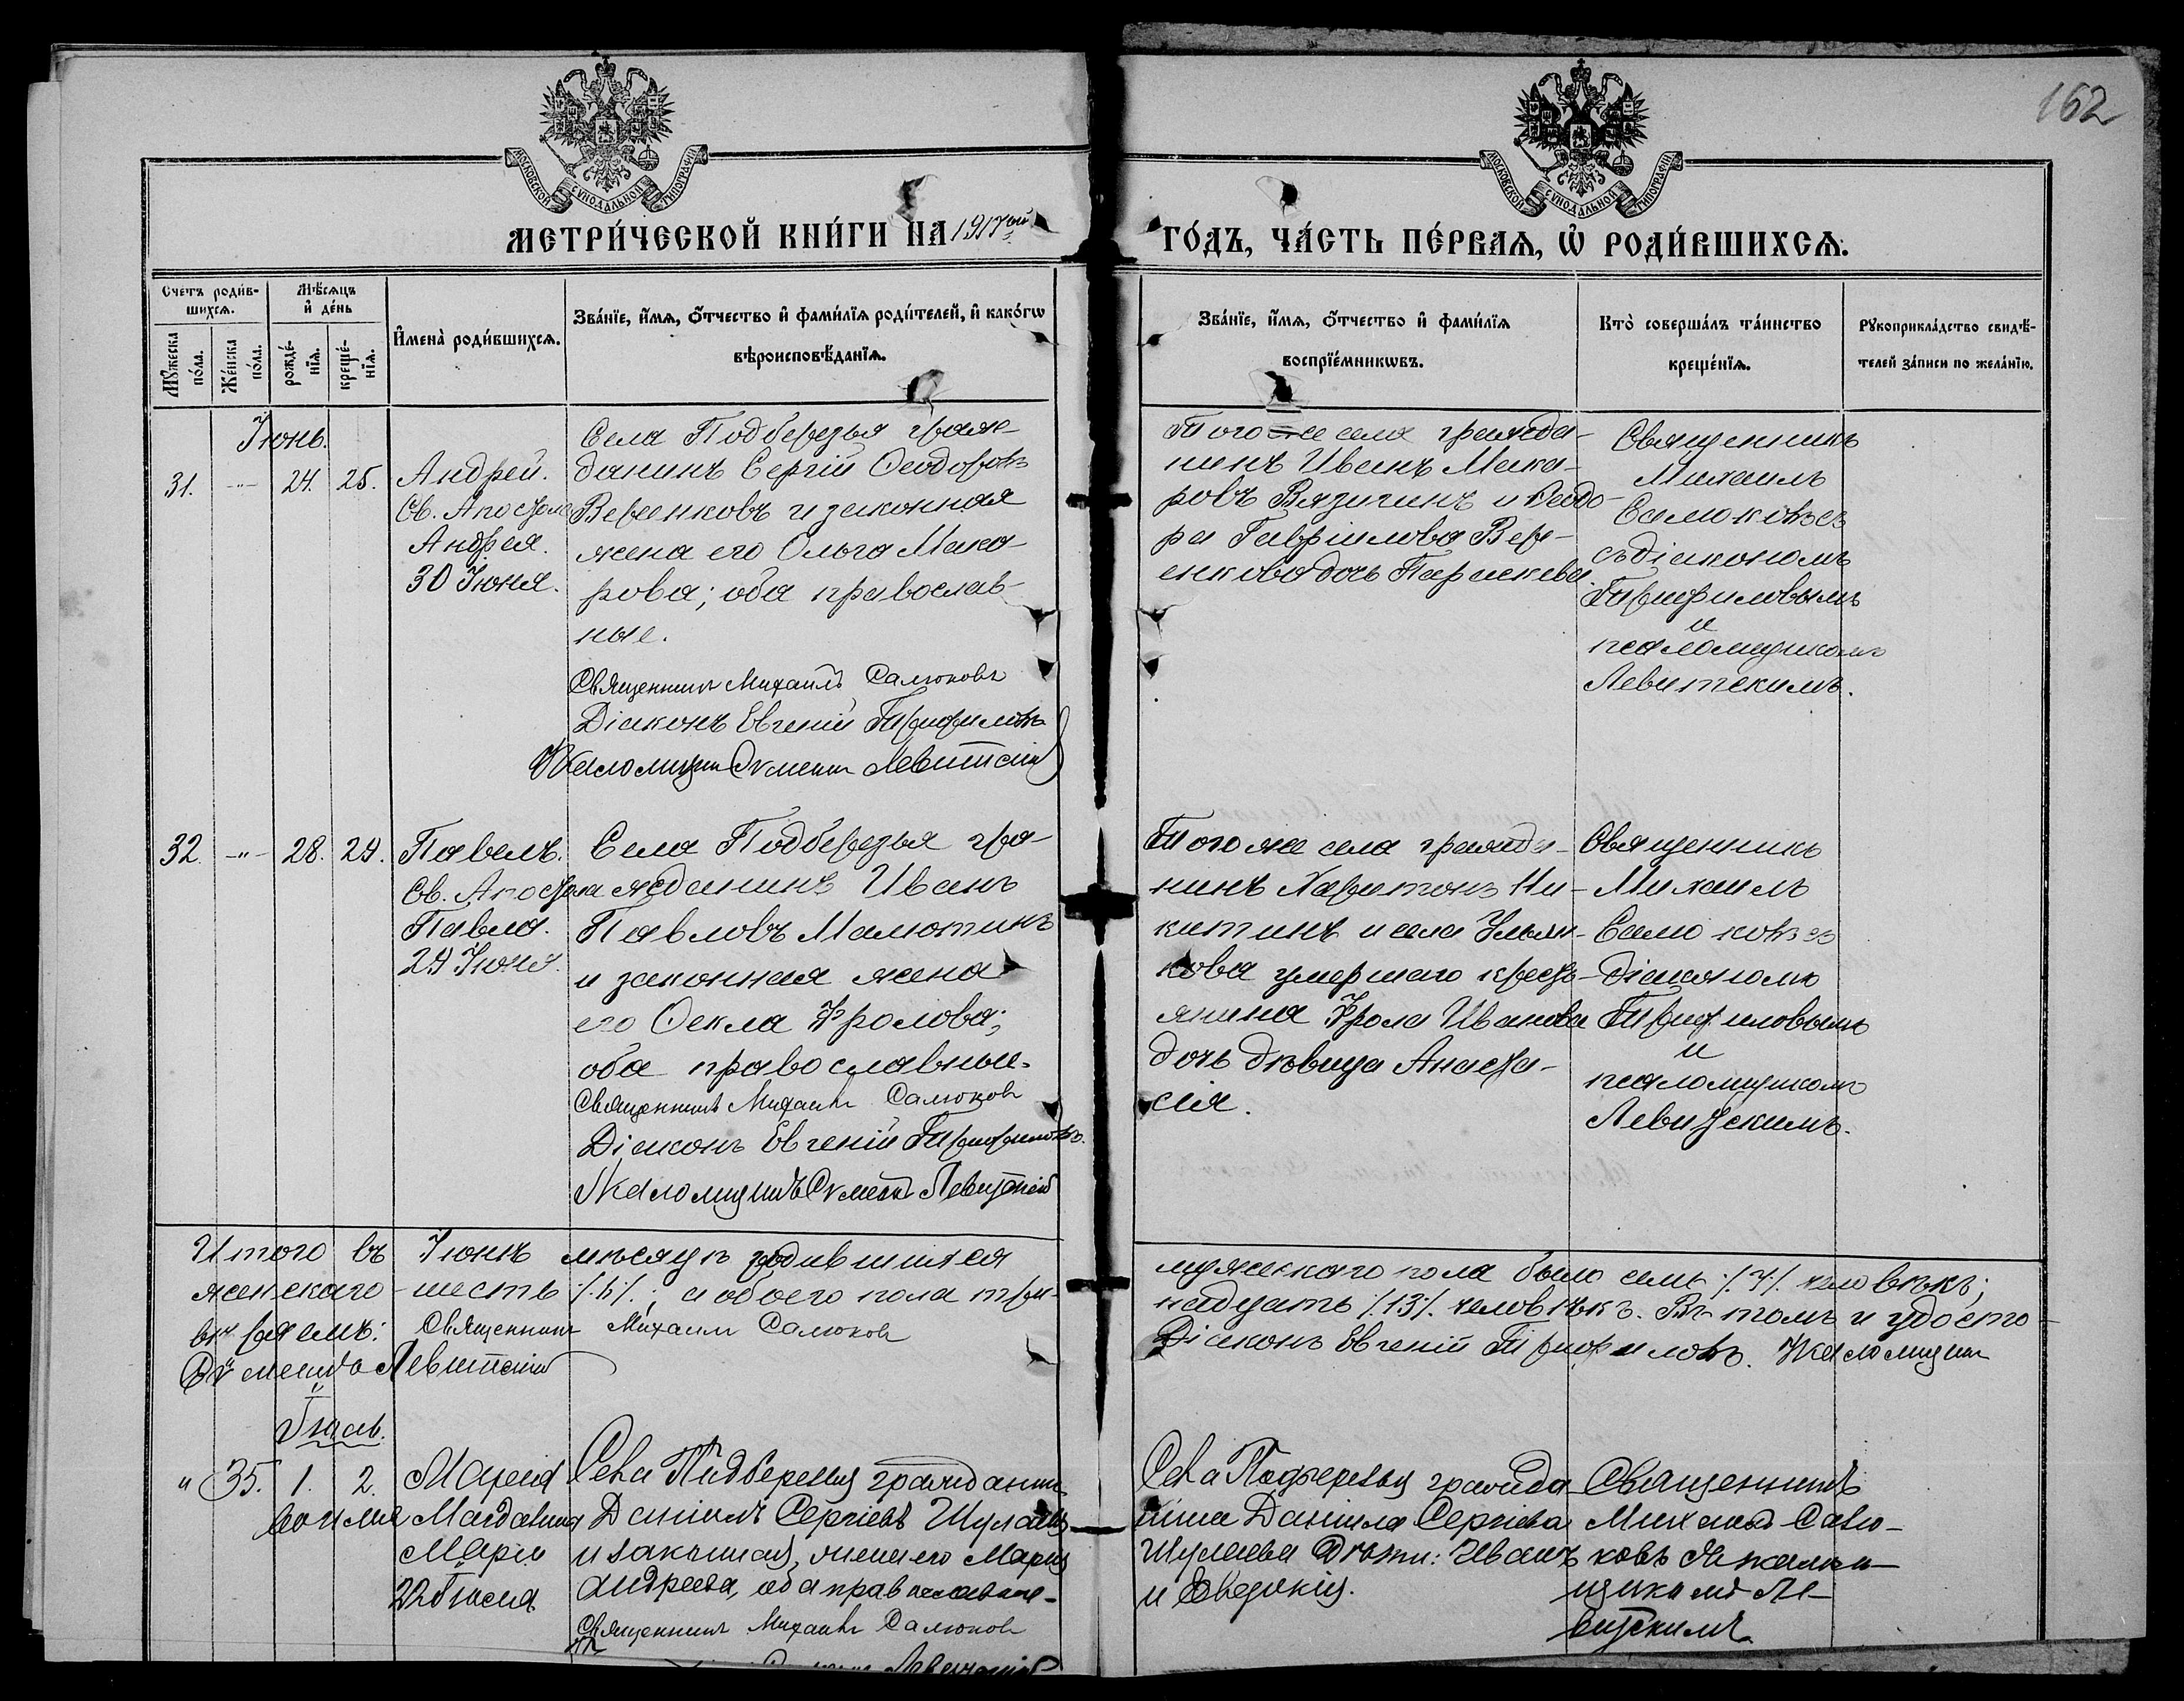 162
МОСКОВСКОЙ СУНОДАЛЬНОЙ ТИПОГРАФІИ
МОСКОВСКОЙ СУНОДАЛЬНОЙ ТИПОГРАФІИ
МЕТРИ́ЧЕСКОЙ КНИ́ГИ НА 1917ый
ГО́ДЪ, ЧА́СТЬ ПЕ́РВАѦ, Ѡ҆ РОДИ́ВШИХСѦ.
Счетъ роди́в-
шихсѧ.
Мꙋ́жеска по́ла.
Же́нска по́ла.
Мѣ́сѧцъ
и҆ де́нь
рожде́-
нїѧ.
креще́-
нїѧ.
И҆мена̀ роди́вшихсѧ.
Зва́нїе, и҆́мѧ, ѻ҆́тчество и҆ фами́лїѧ роди́телей, и҆ како́гѡ
вѣроисповѣ́данїѧ.
Зва́нїе, и҆́мѧ, ѻ҆́тчество и҆ фами́лїѧ
воспрїе́мникѡвъ.
Кто̀ соверша́лъ та́инство
креще́нїѧ.
Рꙋкоприкла́дство свидѣ́-
телей за́писи по жела́нїю.
Іюнь.
31. -"- 24. 25.
Андрей.
Св. Апостола
Андрея.
30 Іюня.
Села Подберезья граж-
данинъ Сергій Ѳеодоровъ
Веренковъ и законная
жена его Ольга Мака-
рова; оба православ-
ные.
Священникъ Михаилъ Салюковъ
Діаконъ Евгеній Трифиловъ
Псаломщик Левитскій
Того же села гражда-
нинъ Иванъ Мака-
ровъ Вязигинъ и Ѳеодо-
ра Гавріилова Вер-
енкова дочь Параскева.
Священникъ
Михаилъ
Салюковъ съ
съ діакономъ
Трифиловымъ
и
псаломщикомъ
Левитскимъ.
32. -"- 28. 29.
Павелъ.
Св. Апостола
Павла.
29 Іюня.
Села Подберезья гра-
жданинъ Иванъ
Павловъ Малютинъ
и законная жена
его Ѳекла Фролова;
оба православные.
Священникъ Михаилъ Салюковъ
Діаконъ Евгеній Трифиловъ.
Псаломщикъ Левитскій
Того же села гражда-
нинъ Харитонъ Ни-
китинъ и села Ульян-
кова умершаго кресть-
янина Фрола Иванова
дочь дѣвица Анаста-
сія.
Священникъ
Михаилъ
Салюковъ съ
діакономъ
Трифиловымъ
и
псаломщикомъ
Левитскимъ.
Итого въ Іюнѣ мѣсяцѣ родившихся
мужескаго пола было семь /.7./ человѣкъ;
женскаго шесть /.6./.; а обоего пола три-
надцать /.13/. человѣкъ. Въ томъ и удосто-
вѣряемъ: Священникъ Михаилъ Салюковъ
Діаконъ Евгеній Трифиловъ. Псаломщик
Левитскій
Іюль.
" 35. 1. 2.
Марія
во имя Магдалина
Маріи
22 Іюля
Села Подберезья гражданинъ
Даніилъ Сергіевъ Шулаевъ
и законная жена его Марія
Андреева, оба православные.
Священникъ Михаилъ Салюковъ
Левитскій
Села Подберезья гражда-
нина Даніила Сергіева
Шулаева дѣти: Иванъ
и Евдокія.
Священникъ
Михаилъ Салю-
ковъ съ псалом-
щикомъ Ле-
витскимъ